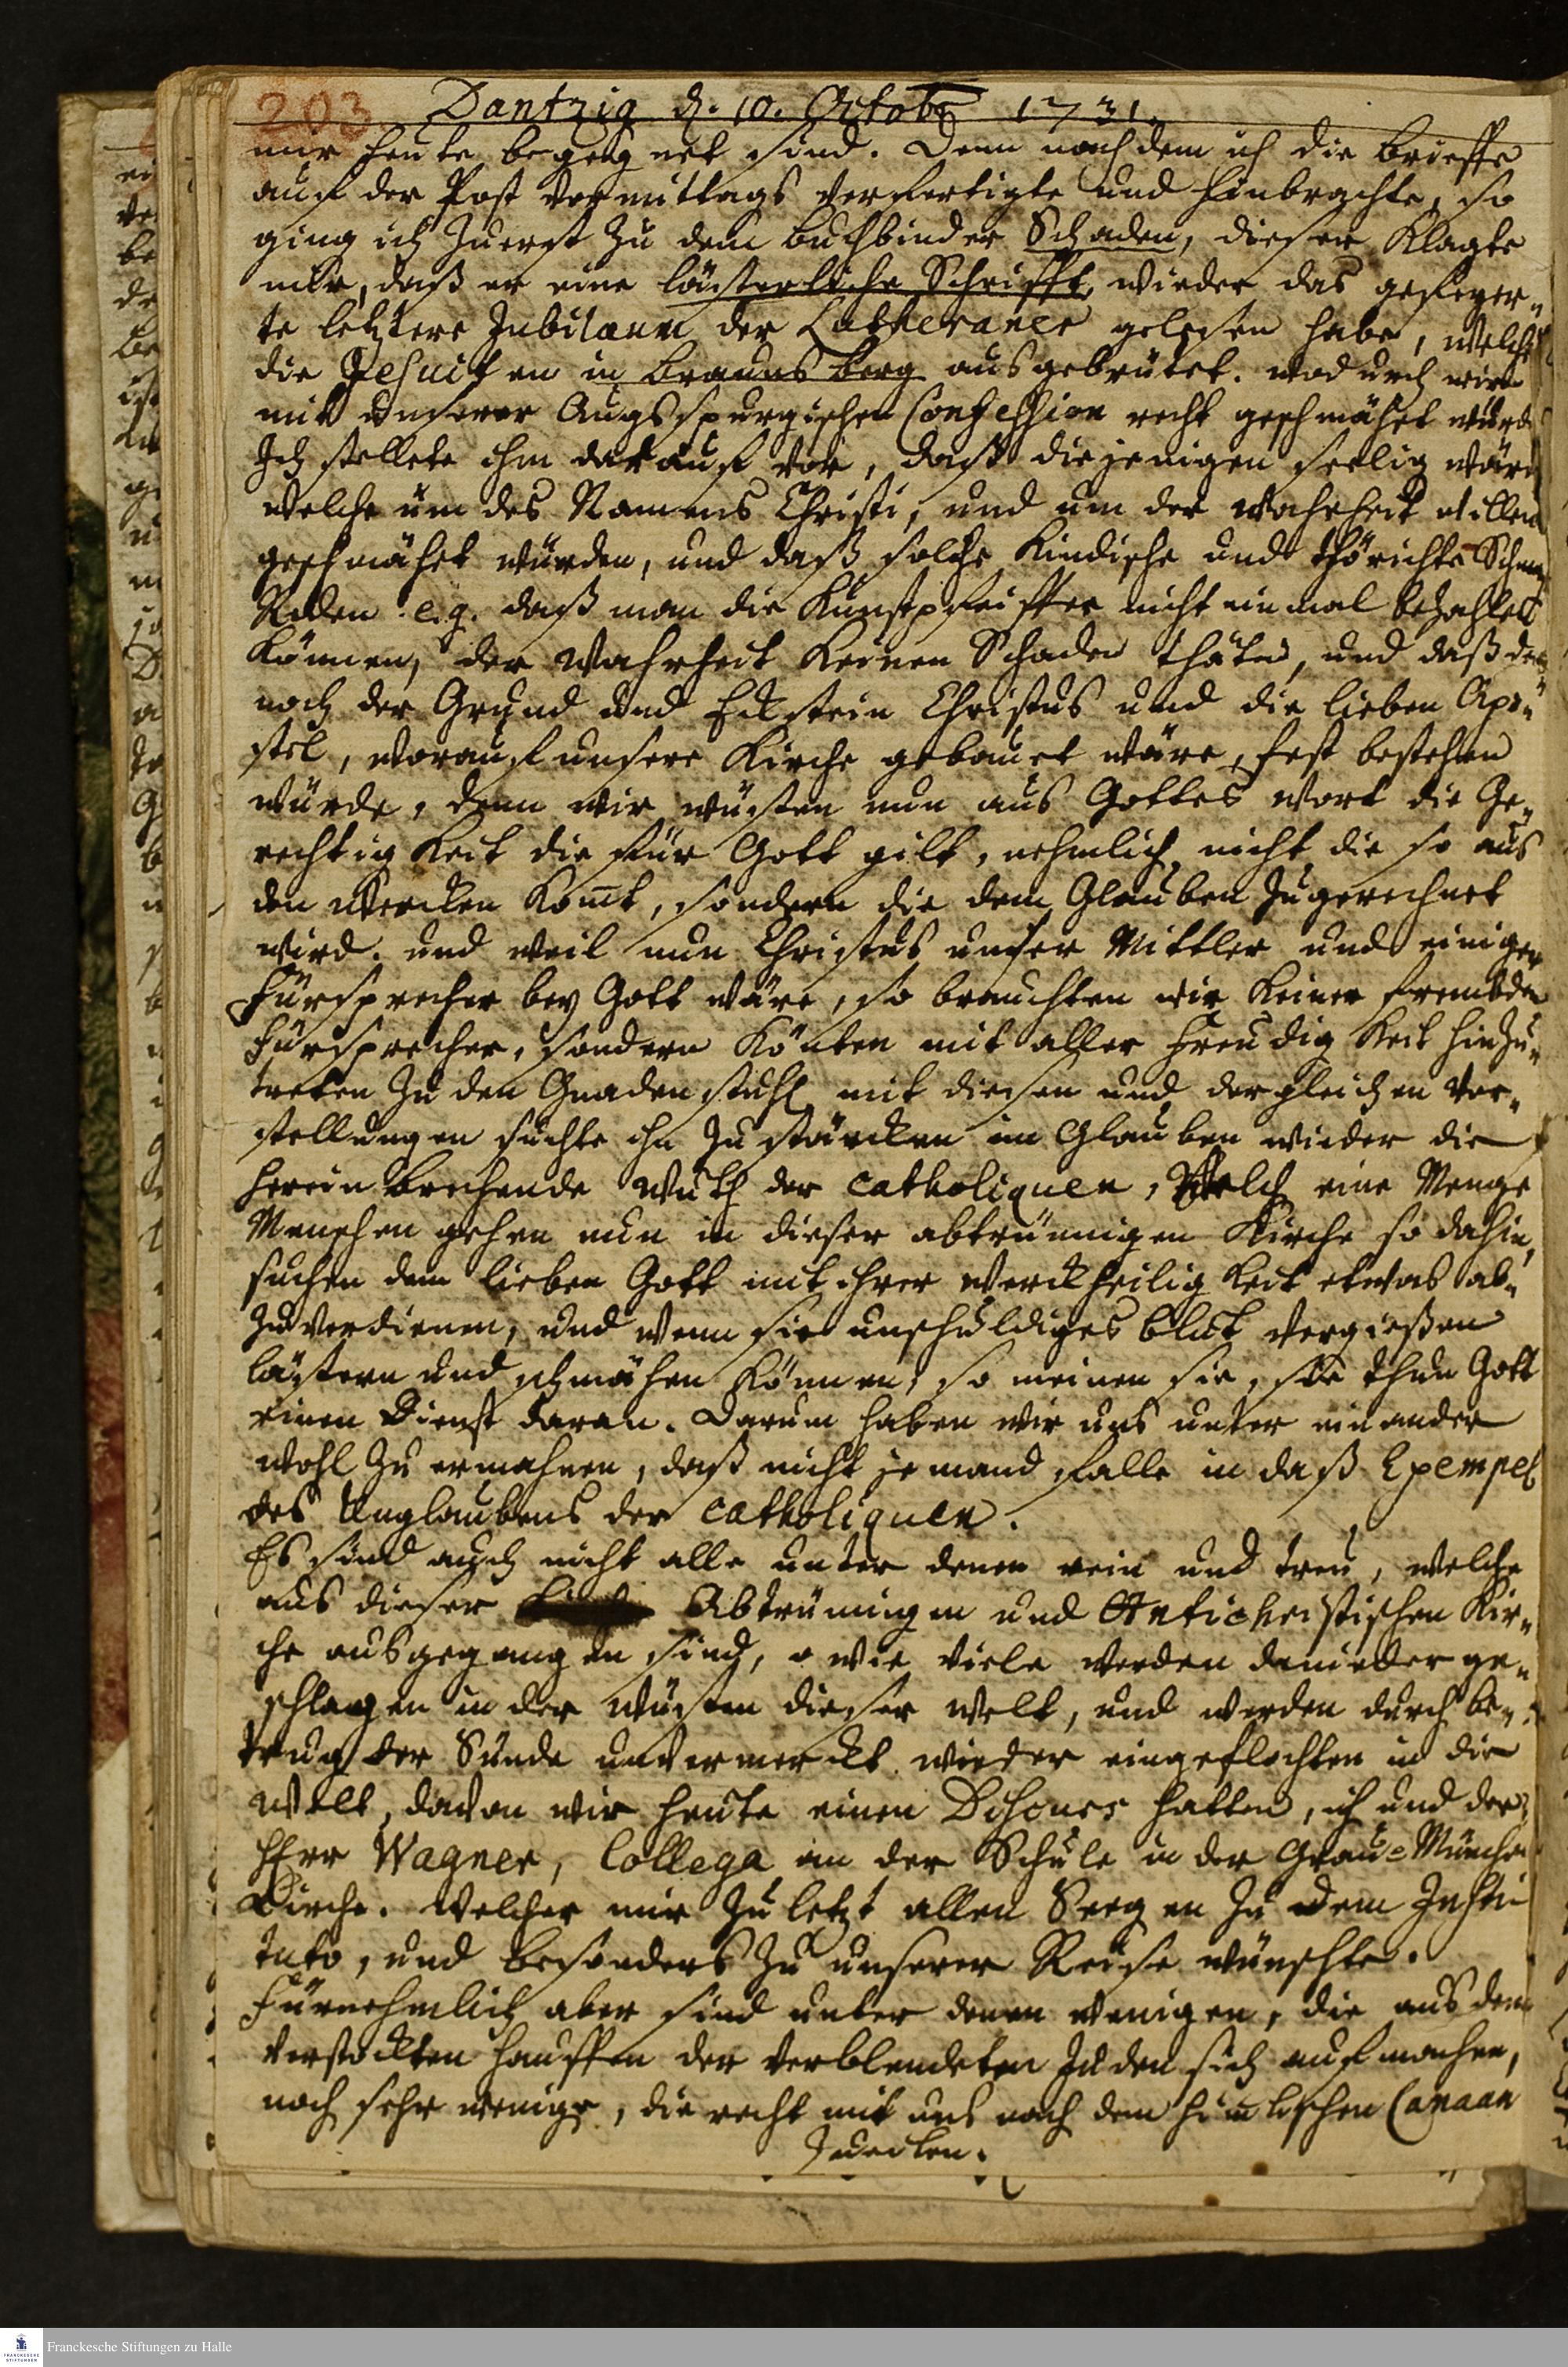 203. Dantzig d. 10. Octobr 1731.
mir heute begegnet sind. Denn nachdem ich die brieffe
auf der Post vormittags verfertigte und hinbrachte, so
ging ich zuerst zu dem buchbinder Schaden, dieser klagte
mir, daß er eine lästerliche Schrifft, wieder das gefeyer„
te letztere Jubilaeum der Lutheraner gelesen habe, welche
die Jesuiten in braunsberg ausgebrütet. wodurch wir
mit unserer Augsspurgischen Confession recht geschmähet würd
Ich stellete ihm darauf vor, daß diejenigen seelig wären
welche um des Namens Christi, und um der wahrheit willen
geschmähet würden, und daß solche kindische und thörichte Schm
Reden e. g. daß man die Kunstpfeiffer nicht einmal bezahlet
können, der wahrheit keinen Schaden thäten, und daß den
noch der Grund und Eckstein Christus und die lieben Apo„
stel, worauf unsere Kirche gebauet wäre, fest bestehen
würde, denn wir wüsten nun aus Gottes wort die Ge„
rechtigkeit die für Gott gilt, nehmlich nicht die so aus
den Wercken kom̄t, sondern die dem Glauben zugerechnet
wird. und weil nun Christus unser Mittler und einiger
Fürsprecher bey Gott wäre, so brauchten wir keiner frembden
Fürsprecher, sondern könten mit aller Freudigkeit hinzu„
treten zu den Gnadenstuhl mit diesen und dergleichen vor„
stellungen suchte ihn zu stärcken im Glauben wieder die
hereinbrechende wuth der catholiquen, Welch eine Menge
Menschen gehen nun in dieser abtrünnigen Kirche so dahin,
suchen dem lieben Gott mit ihrer werckheiligkeit etwas ab„
zuverdienen, und wenn sie unschuldiges blut vergießen
lästern und schmähen können, so meinen sie, sie thun Gott
einen Dienst daran. Darum haben wir uns unter einander
wohl zu ermahnen, daß nicht jemand falle in daß Exempel
des Unglaubens der catholiquen.
Es sind auch nicht alle unter denen rein und treu, welche
aus dieser Abtrünnigen und Antichristischen Kir„
che ausgegangen sind, o wie viele werden danieder ge„
schlagen in der wüsten dieser welt, und werden durch be„
trug der Sünde unvermerckt wieder eingeflochten in die
welt, davon wir heute einen Discours hatten, ich und der
HErr Wagner, Collega an der Schule in der Grau=München
Kirche. welcher mir zuletzt allen Seegen zu dem Insti
tuto, und besonders zu unserer Reise wünschte.
Fürnehmlich aber sind unter denen wenigen, die aus dem
verstockten hauffen der verblendeten Juden sich aufmachen,
noch sehr wenige, die recht mit uns nach dem him̄lischen Canaan
zueilen.
Franckesche Stiftungen zu Halle